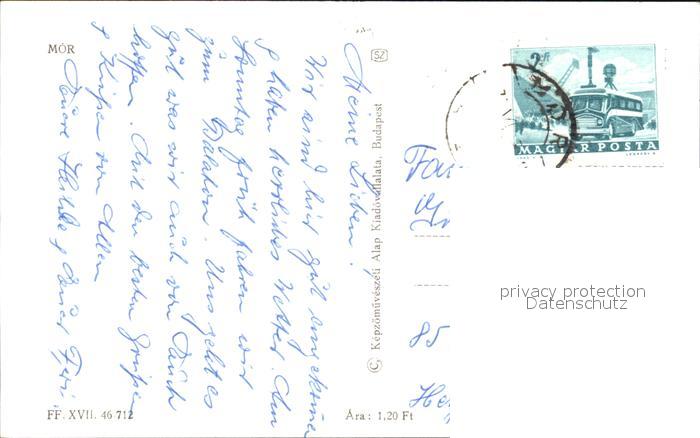 MÓR
Meine Lieben!
Wir sind hier gut angekommen
& haben herrliches Wetter. Am
Sonntag früh fahren wir
zum Balaton. Uns geht es
gut was wir auch von Euch
hoffen. Mit den besten Grüßen
& Küßen von Allen
Eure &
SZ
© Képzőművészeti Alap Kiadóvállalata, Budapest
FF. XVII. 46 712
Ára: 1,20 Ft
2 Ft
MAGYAR POSTA
85
privacy protection
Datenschutz